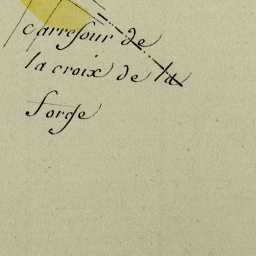 carrefour de
la croix de la
forge